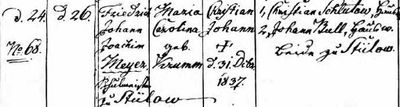 d. 24. d. 26. Friedrich Maria Christian 1, Christian Schlutow, Häusler
Johann Carolina Johann 2, Johann Bull, Häusler
No 68. Joachim geb. † beide zu Stülow.
Meyer, Krumm d. 31. Decbr
zu Stülow 1837.